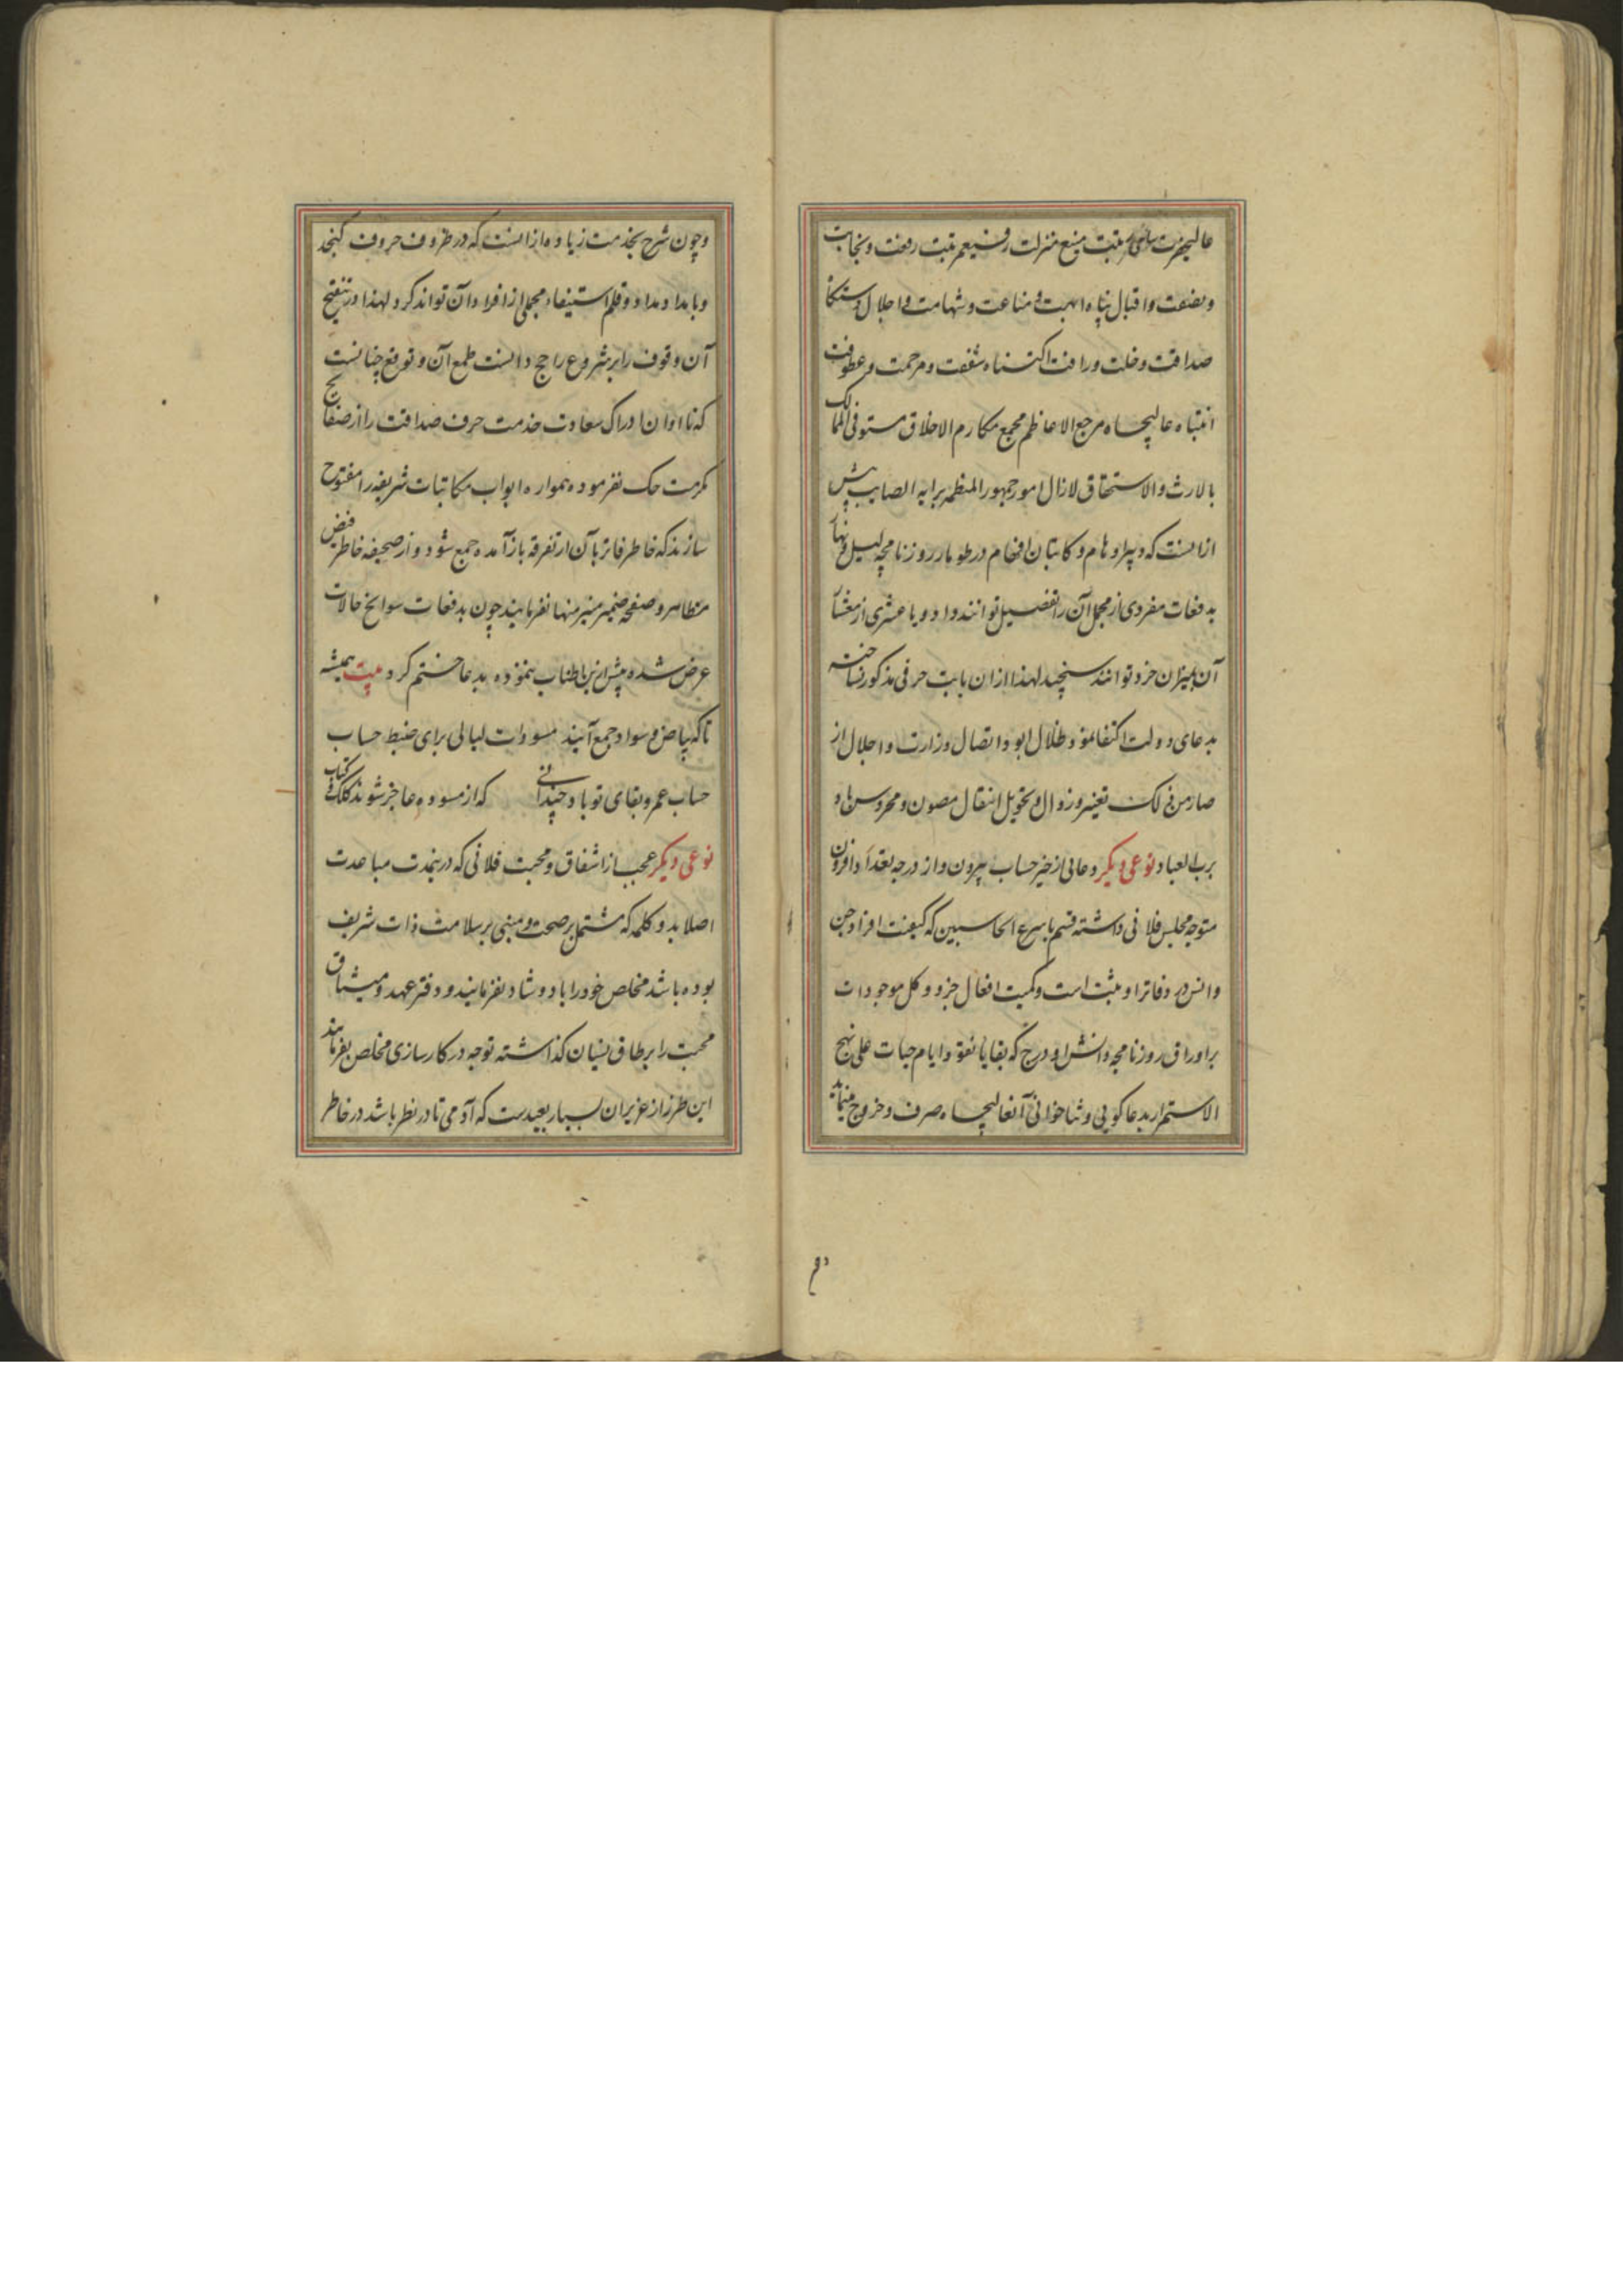 عالیحضرت سامی مرتبت منیع منزلت رفیع مرتبت رفعت و نجابت
و نصفت و اقبال پناه ابهت و مناعت و شهامت و اجلال دستگاه
صداقت و خلت و رافت اکتناه شفقت و مرحمت و عطوفت
انتباه عالیجاه مرجع الاعاظم مجمع مکارم الاخلاق مستوفی الممالک
بالارث والاستحقاق لازال امور جمهور المنظمه برایه الصایب بیش
ازانست که دبیر اوهام و کاتبان افهام در طومار روزنامچه لیل و نهار
بدفعات مفردی از مجمل آن را تفضیل توانند داد و یا عشری از معشار
آن بمیزان خرد توانند سنجید لهذا ازان بابت حرفی مذکور نساخته
بدعای دولت اکتفا نمود ظلال ابود و اتصال وزارت و اجلال از
تغییر و زوال و تحویل انتقال مصون و محروس باد
برب العباد نوعی دیکر دعائی از حیز حساب بیرون و از درجه تعداد افزون
متوجه مجلس فلانی داشته قسم باسرع الحاسبین که کیفیت افراد جن
و انس در دفاتر او مثبت است و کمیت افعال جزو و کل موجودات
بر اوراق روزنامچه دانش او درج که بقایا نقود ایام حیات علی نهج
الاستمرار بدعا کویی و ثنا خوانی آنعالیجاه صرف و خروج مینماید
وچون شرح بخدمت زیاده ازانست که در ظروف حروف کنجد
و بامداد مداد و قلم استیفاء مجملی از افراد آن تواند کرد لهذا در تنقیح
آن وقوف را بر شروع راجح دانست طمع آن و توقع چنانست
که تا اوان ادراک سعادت خدمت حرف صداقت را از صفایح
مکرمت حک نفرموده همواره ابواب مکاتبات شریفه را مفتوح
سازند که خاطر فاتر بآن از تفرقه باز آمده جمع شود و از صحیفه خاطر فیض
مظاهر و صفحه ضمیر منیر منها نفرمایند چون بدفعات سوانح حالات
عرض شده پیش ازین اطناب ننموده بدعا ختم کرد بیت همیشه
تا که بیاض و سواد جمع آیند مسودات لیالی برای ضبط حساب
حساب عمر و بقای تو باد چندانی که از مسوده عاجز شوند کلک و کتاب
نوعی دیکر عجب از اشفاق و محبت فلانی که درینمدت مباعدت
اصلا بدو کلمه که مشتمل بر صحت و مبنی بر سلامت ذات شریف
بوده باشد مخلص خود را یاد و شاد نفرمایند و دفتر عهد و میثاق
محبت را بر طاق نسیان کذاشته توجه در کارسازی مخلص نفرمایند
این طرز از عزیزان بسیار بعیدست که آدمی تا در نظر باشد در خاطر